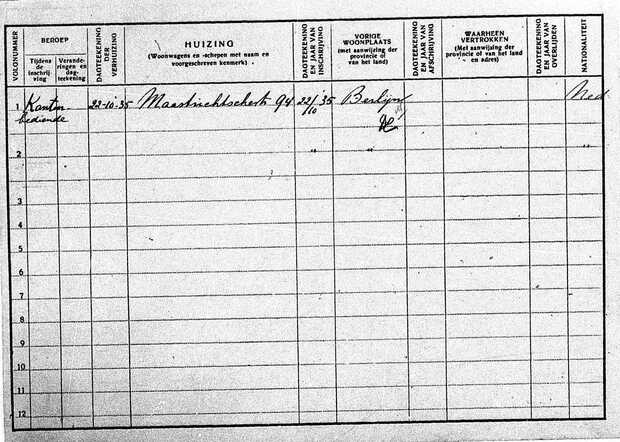 VOLGNUMMER
BEROEP
Tijdens
de
inschrij-
ving
Verande-
ringen en
dag-
teekening
DAGTEEKENING
DER
VERHUIZING
HUIZING
(Woonwagens en -schepen met naam en
voorgeschreven kenmerk)
DAGTEEKENING
EN JAAR VAN
INSCHRIJVING
VORIGE
WOONPLAATS
(met aanwijzing der
provincie of
van het land)
DAGTEEKENING
EN JAAR VAN
AFSCHRIJVING
WAARHEEN
VERTROKKEN
(Met aanwijzing der
provincie of van het land
en adres)
DAGTEEKENING
EN JAAR VAN
OVERLIJDEN
NATIONALITEIT
1 Kantoor 22-10-35 Maastrichtschestr 94 22/10 '35 Berlijn Ned.
bediende
2 " " "
3
4
5
6
7
8
9
10
11
12